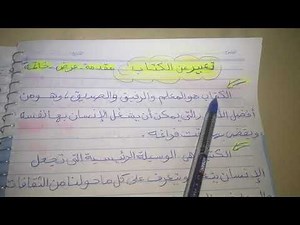 تعبير عن الكتاب مقدمة - عرض - خاتمة
الكتاب هو المعلم والرفيق والصديق، وهو من
أفضل التي يمكن أن يشغل الإنسان بها نفسه
ويقضي وقت فراغه.
الكتب هي الوسيلة الرئيسية التي تجعل
الإنسان ويتعرف على كل ما حولنا من الثقافات